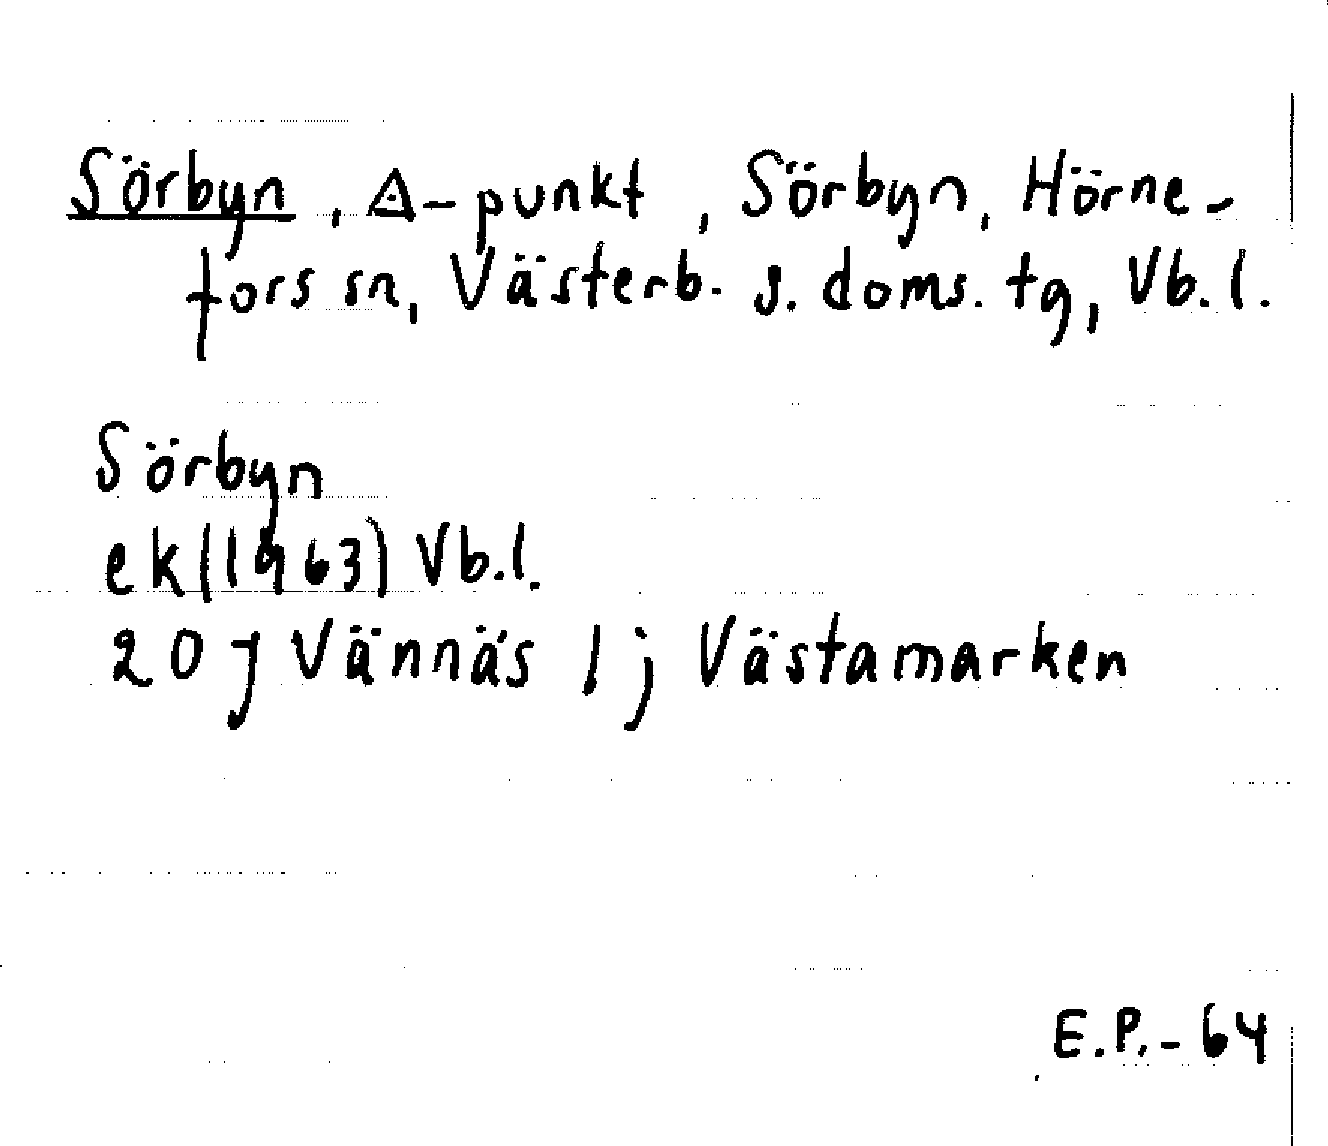 Sörbyn, ◬-punkt, Sörbyn, Hörne-
fors sn, Västerb. s. doms. tg, Vb. l.
Sörbyn
ek (1963) Vb.l.
20 J Vännäs 1 j Västamarken
E.P.-64